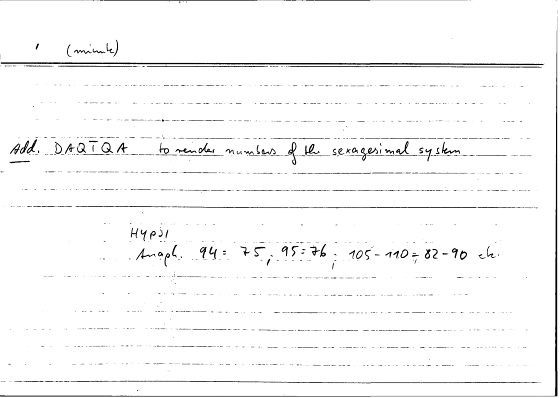 ' (minute)
Add. DAQĪQA to render numbers of the sexagesimal system
Hypsi
Anaph. 94 = 75, 95 = 76; 105-110 = 82-90 etc.